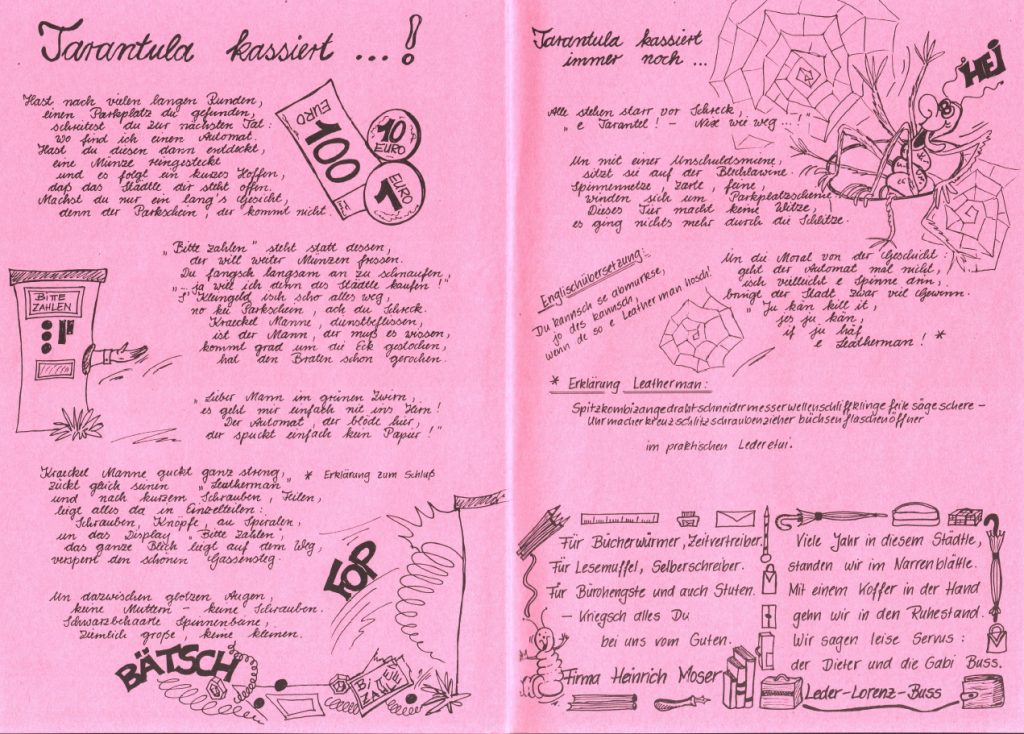 Tarantula kassiert ...!
Hast nach vielen langen Runden,
einen Parkplatz du gefunden,
schreitest du zur nächsten Tat:
Wo find ich einen Automat.
Hast du diesen dann entdeckt,
eine Münze reingesteckt
und es folgt ein kurzes Hoffen,
daß das Städtle dir steht offen.
Machst du nur ein lang's Gesicht,
denn der Parkschein, der kommt nicht.
EURO
100
EURO
10
EURO
1
EURO
„Bitte zahlen" steht statt dessen,
der will weiter Münzen fressen.
Du fangsch langsam an zu schnaufen,
"- ja will ich denn des Städtle kaufen!"
S' Kleingeld isch scho alles weg,
no kei Parkschein, ach du Schreck.
Kraeckel Manne, dienstbeflissen,
ist der Mann, der muß es wissen,
kommt grad um die Eck gestochen,
hat den Braten schon gerochen.
BITTE
ZAHLEN
„Lieber Mann im grünen Zwirn,
es geht mir einfach nit ins Hirn!
Der Automat, der blöde hier,
der spuckt einfach kein Papier!"
Kraeckel Manne guckt ganz streng,
zückt glich seinen „Leatherman" * Erklärung zum Schluß
und nach kurzem Schrauben, Feilen,
liegt alles da in Einzelteilen:
Schrauben, Knöpfe, au Spiralen,
un das Display „Bitte Zahlen",
das ganze Blech liegt auf dem Weg,
versperrt den schönen Gassensteg.
FOP
Un dazwischen glotzen Augen,
keine Muttern – keine Schrauben.
Schwarzbehaarte Spinnenbeine,
ziemlich große, keine kleinen.
BÄTSCH
BITTE
ZAHLEN
Tarantula kassiert
immer noch ...
HEJ
Alle stehen starr vor Schreck,
„e Tarantel! – Nix wie weg ...!"
Un mit einer Unschuldsmiene,
sitzt sie auf der Blechlawine.
Spinnennetze, zarte, feine,
winden sich um Parkplatzscheine
Dieses Tier macht keine Witze,
es ging nichts mehr durch die Schlitze.
Un die Moral von der Geschicht:
geht der Automat mal nicht,
isch vielleicht e Spinne drin,
bringt der Stadt zwar viel Gewinn.
„Ju kän kill it,
jes ju kän,
if ju häf
e Leatherman! *
Englischübersetzung:
Du kannsch se abmurkse,
jo des kannsch,
wenn de so e Leatherman hosch!
* Erklärung Leatherman:
Spitzkombizangedrahtschneidermesserwellenschliffklinge feile säge schere –
Uhrmacherkreuzschlitzschraubenzieher büchsenflaschenöffner
im praktischen Lederetui.
Für Bücherwürmer, Zeitvertreiber.
Für Lesemuffel, Selberschreiber.
Für Bürohengste und auch Stuten.
– Kriegsch alles Du
bei uns vom Guten.
Firma Heinrich Moser
Viele Jahr in diesem Städtle,
standen wir im Narrenblättle.
Mit einem Koffer in der Hand
gehn wir in den Ruhestand.
Wir sagen leise Servus:
der Dieter und die Gabi Buss.
Leder-Lorenz-Buss